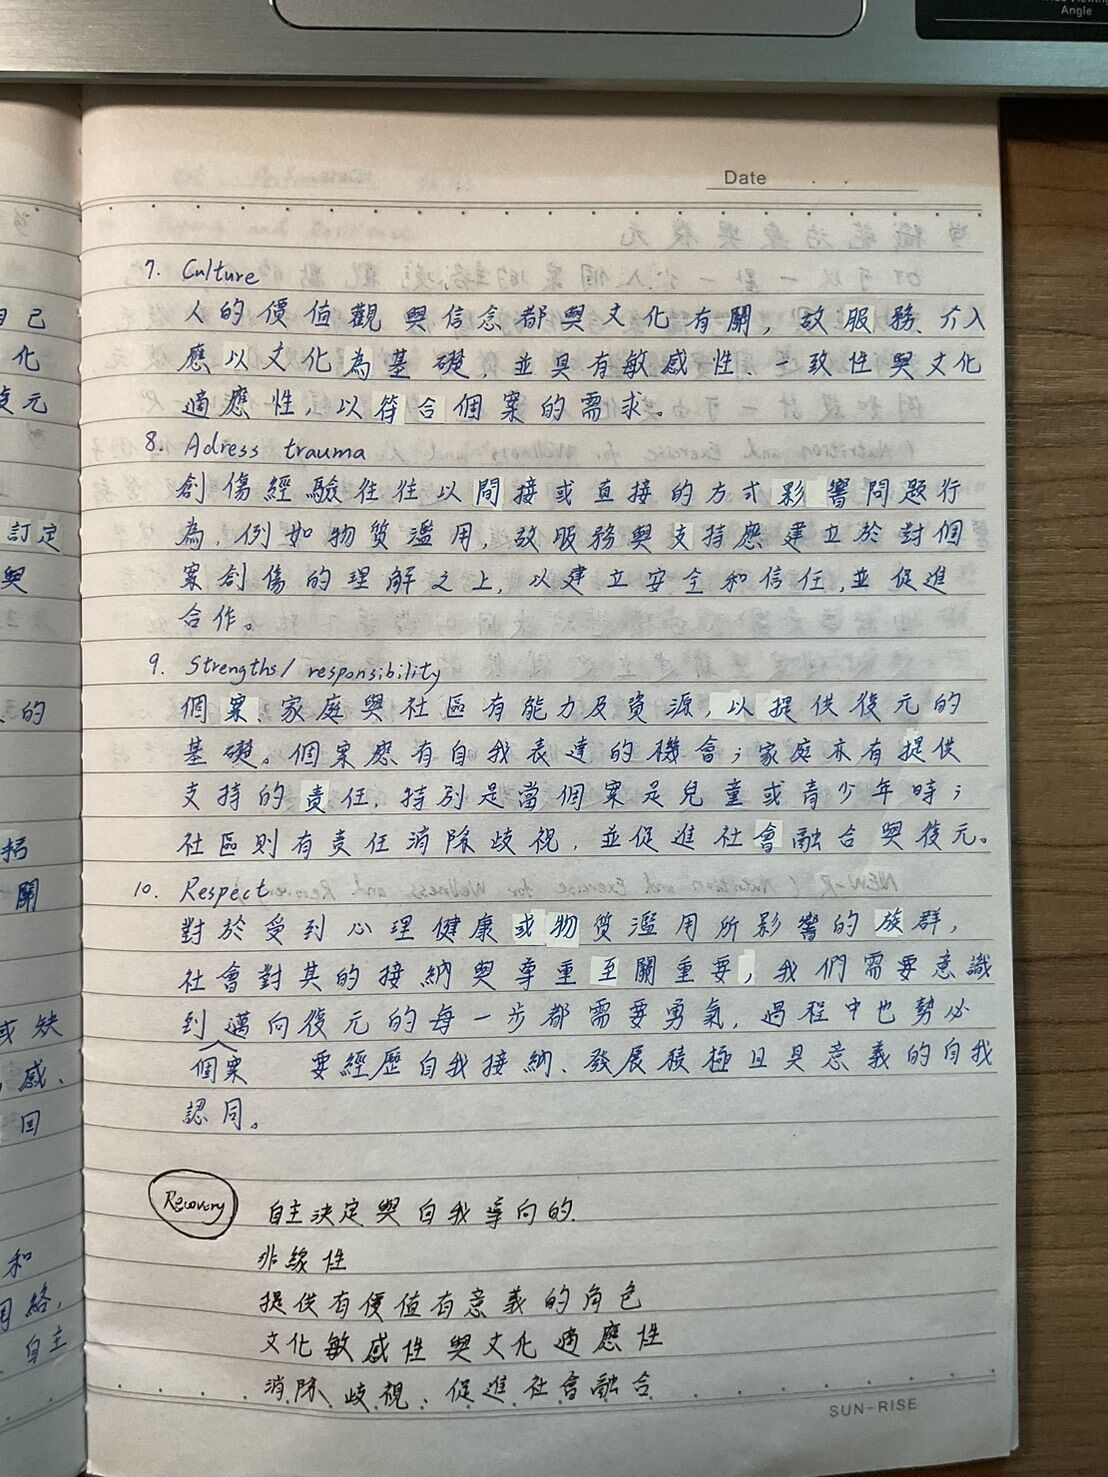 Angle
Date
7. Culture
人的價值觀與信念都與文化有關，故服務、介入
應以文化為基礎，並具有敏感性、一致性與文化
適應性，以符合個案的需求。
8. Adress trauma
創傷經驗往往以間接或直接的方式影響問題行
為，例如物質濫用，故服務與支持應建立於對個
案創傷的理解之上，以建立安全和信任，並促進
合作。
9. Strengths/ responsibility
個案、家庭與社區有能力及資源，以提供復元的
基礎。個案應有自我表達的機會；家庭亦有提供
支持的責任，特別是當個案是兒童或青少年時；
社區則有責任消除歧視，並促進社會融合與復元。
10. Respect
對於受到心理健康或物質濫用所影響的族群，
社會對其的接納與尊重至關重要，我們需要意識
到邁向復元的每一步都需要勇氣，過程中也勢必
個案 要經歷自我接納、發展積極且具意義的自我
認同。
Recovery 自主決定與自我導向的
非線性
提供有價值有意義的角色
文化敏感性與文化適應性
消除歧視、促進社會融合
SUN-RISE
自己
化
復元
訂定
與
的
招
關
或缺
感、
回
和
自主